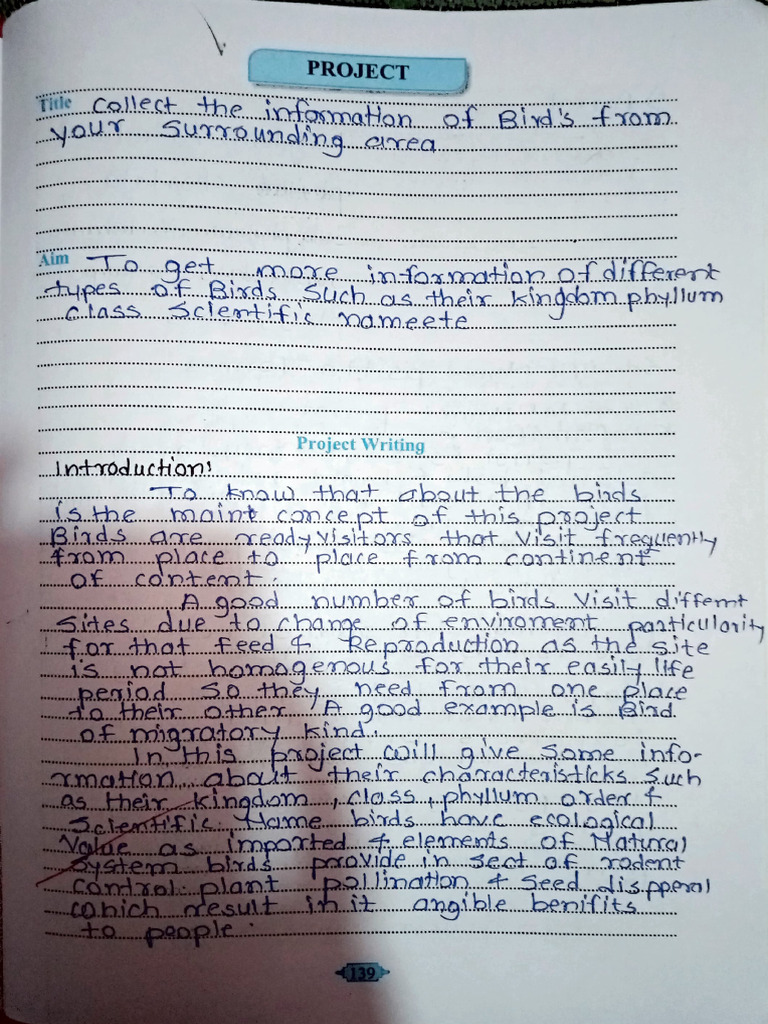 PROJECT
Title Collect the information of Bird's from
your Surrounding area
Aim To get more information of different
types of Birds Such as their kingdom phyllum
class Scientific name ete
Project Writing
Introduction:
To know that about the birds
is the maint concept of this project
Birds are ready visitors that visit frequently
from place to place from continent
of content.
A good number of birds visit differnt
Sites due to change of enviroment particularity
for that feed & Reproduction as the site
is not homogenous for their easily life
period so they need from one place
to their other, A good example is Bird
of migratory kind.
In this project will give some info-
rmation about their characteristicks Such
as their kingdom, class, phyllum order &
Scientific Name birds have ecological
Value as imported & elements of Natural
System birds provide in sect of rodent
control plant pollination & Seed dispperal
which result in it angible benifits
to people.
139